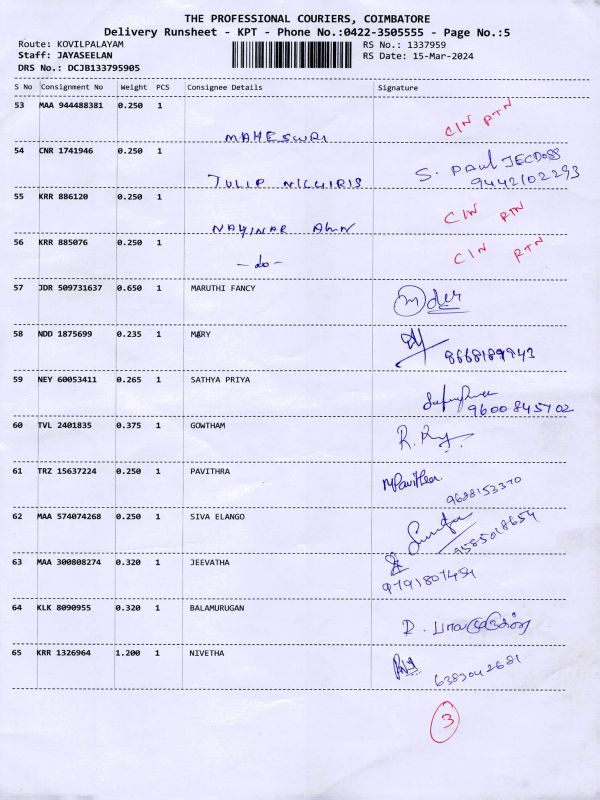 THE PROFESSIONAL COURIERS, COIMBATORE
Delivery Runsheet - KPT - Phone No.:0422-3505555 - Page No.:5
Route: KOVILPALAYAM RS No.: 1337959
Staff: JAYASEELAN RS Date: 15-Mar-2024
DRS No.: DCJB133795905
S No Consignment No Weight PCS Consignee Details Signature
53 MAA 944488381 0.250 1 C/N RTN
MAHESWRI
54 CNR 1741946 0.250 1 S. PAUL JECDOSS
TULIP NILGIRIS 9442102293
55 KRR 886120 0.250 1 C/N RTN
NAYINAR AHN
56 KRR 885076 0.250 1 C/N RTN
- do -
57 JDR 509731637 0.650 1 MARUTHI FANCY
58 NDD 1875699 0.235 1 MARY
8668189943
59 NEY 60053411 0.265 1 SATHYA PRIYA
9600845702
60 TVL 2401835 0.375 1 GOWTHAM
61 TRZ 15637224 0.250 1 PAVITHRA MPavithra
9688153370
62 MAA 574074268 0.250 1 SIVA ELANGO
9585018654
63 MAA 300808274 0.320 1 JEEVATHA
9791807491
64 KLK 8090955 0.320 1 BALAMURUGAN
65 KRR 1326964 1.200 1 NIVETHA
6382042681
3